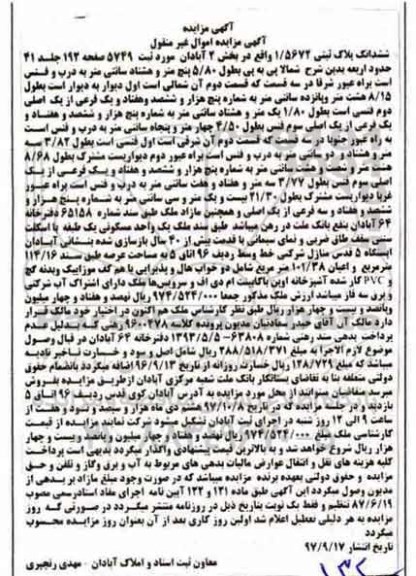 آگهی مزایده
آگهی مزایده اموال غیر منقول
ششدانگ پلاک ثبتی ۱/۵۶۷۲ واقع در بخش ۲ آبادان مورد ثبت ۵۷۴۹ صفحه ۱۹۲ جلد ۴۱
حدود اربعه بدین شرح شمالا پی به پی بطول ۵/۸۰ پنج متر و هشتاد سانتی متر به درب و فنس
است براه عبور شرقا در سه قسمت که قسمت دوم آن شمالی است اول دیوار به دیوار است بطول
۸/۱۵ هشت متر وپانزده سانتی متر به شماره پنج هزار و ششصد وهفتاد و یک فرعی از یک اصلی
دوم فنسی است بطول ۱/۸۰ یک متر و هشتاد سانتی متر به شماره پنج هزار و ششصد و هفتاد و
یک فرعی از یک اصلی سوم فنس بطول ۴/۵۰ چهار متر و پنجاه سانتی متر به درب و فنس است
به راه عبور جنوبا در سه قسمت که قسمت دوم آن شرقی است اول فنسی است بطول ۳/۸۲ سه
متر و هشتاد و دو سانتی متر به درب و فنس است براه عبور دوم دیواریست مشترک بطول ۸/۶۸
هشت متر و شصت و هشت سانتی متر به شماره پنج هزار و ششصد و هفتاد و یک فرعی از یک
اصلی سوم فنس بطول ۳/۷۷ سه متر و هفتاد و هفت سانتی متر به درب و فنس است براه عبور
غربا دیواریست مشترک بطول ۲۱/۳۰ بیست و یک متر و سی سانتی متر به شماره پنج هزار و
ششصد و هفتاد و سه فرعی از یک اصلی و همچنین مازاد ملک طبق سند شماره ۶۵۱۵۸ دفترخانه
۶۴ آبادان بنفع بانک ملت در رهن میباشد طبق سند ملک یک واحد مسکونی یک طبقه با اسکلت
سنتی سقف طاق ضربی و نمای سیمانی با قدمت بیش از ۴۰ سال بازسازی شده بنشانی آبادان
ایستگاه ۵ قدس منازل شرکتی خط وسط ردیف ۹۶ اتاق ۵ مساحت عرصه طبق سند ۱۱۴/۱۶
مترمربع و اعیان ۱۰۱/۳۸ متر مربع شامل دو خواب هال و پذیرایی با هم کف موزاییک وبدنه گچ
و PVC کار شده آشپزخانه اوپن باکابینت ام دی اف و سرویس‌ها ملک دارای اشتراک آب شرکتی
و برق سه فاز میباشد ارزش ملک مذکور جمعا ۹۷۴/۵۲۴/۰۰۰ ریال نهصد و هفتاد و چهار میلیون
وپانصد و بیست و چهار هزار ریال طبق نظر کارشناس ملک هم اکنون در اختیار خود مالک قرار
دارد مالک آن آقای حیدر سعادتیان مدیون پرونده کلاسه ۹۶۰۰۲۷۸ رهنی که بدلیل عدم
پرداخت بدهی سند رهنی شماره ۶۳۸۰۸-۱۳۹۳/۵/۵ دفترخانه ۶۴ آبادان در قبال وصول
موضوع لازم الاجرا به مبلغ ۲۸۸/۵۱۸/۳۷۱ ریال شامل اصل و سود و خسارت تاخیر تادیه
میباشد که مبلغ ۱۲۸/۷۲۹ ریال خسارت روزانه از تاریخ ۹۶/۹/۱۳ اضافه میگردد بانضمام حقوق
دولتی متعلقه بنا به تقاضای بستانکار بانک ملت شعبه مرکزی آبادان ازطریق مزایده بفروش
میرسد متقاضیان میتوانند از محل مورد مزایده به آدرس آبادان کوی قدس ردیف ۹۶ اتاق ۵
بازدید و در جلسه مزایده که در تاریخ ۹۷/۱۰/۸ هشتم دی ماه هزار و سیصد و نود و هفت از
ساعت ۹ الی ۱۲ روز شنبه در اجرای ثبت آبادان تشکیل میشود شرکت نمایند مزایده از قیمت
کارشناسی ملک مبلغ ۹۷۴/۵۲۴/۰۰۰ ریال نهصد و هفتاد و چهار میلیون و پانصد و بیست و چهار
هزار ریال شروع خواهد شد و به بالاترین قیمت پیشنهادی واگذار میگردد بدیهی است پرداخت
کلیه هزینه های نقل و انتقال عوارض مالیات بدهی های مربوط به آب و برق وگاز و تلفن و حق
مزایده و حقوق دولتی بعهده برنده مزایده میباشد که در صورت وجود مبلغ مازاد بر بدهی از
مدیون وصول میگردد این آگهی طبق ماده ۱۲۱ و ۱۲۲ آیین نامه اجرای مفاد اسنادرسمی مصوب
۸۷/۶/۱۹ تنظیم و فقط یک نوبت بتاریخ ذیل در روزنامه منتشر میگردد در صورتی که روز
مزایده به هر دلیلی تعطیل اعلام شد اولین روز کاری بعد از آن بعنوان روز مزایده محسوب
میگردد
تاریخ انتشار ۹۷/۹/۱۷
معاون ثبت اسناد و املاک آبادان - مهدی رنجبری